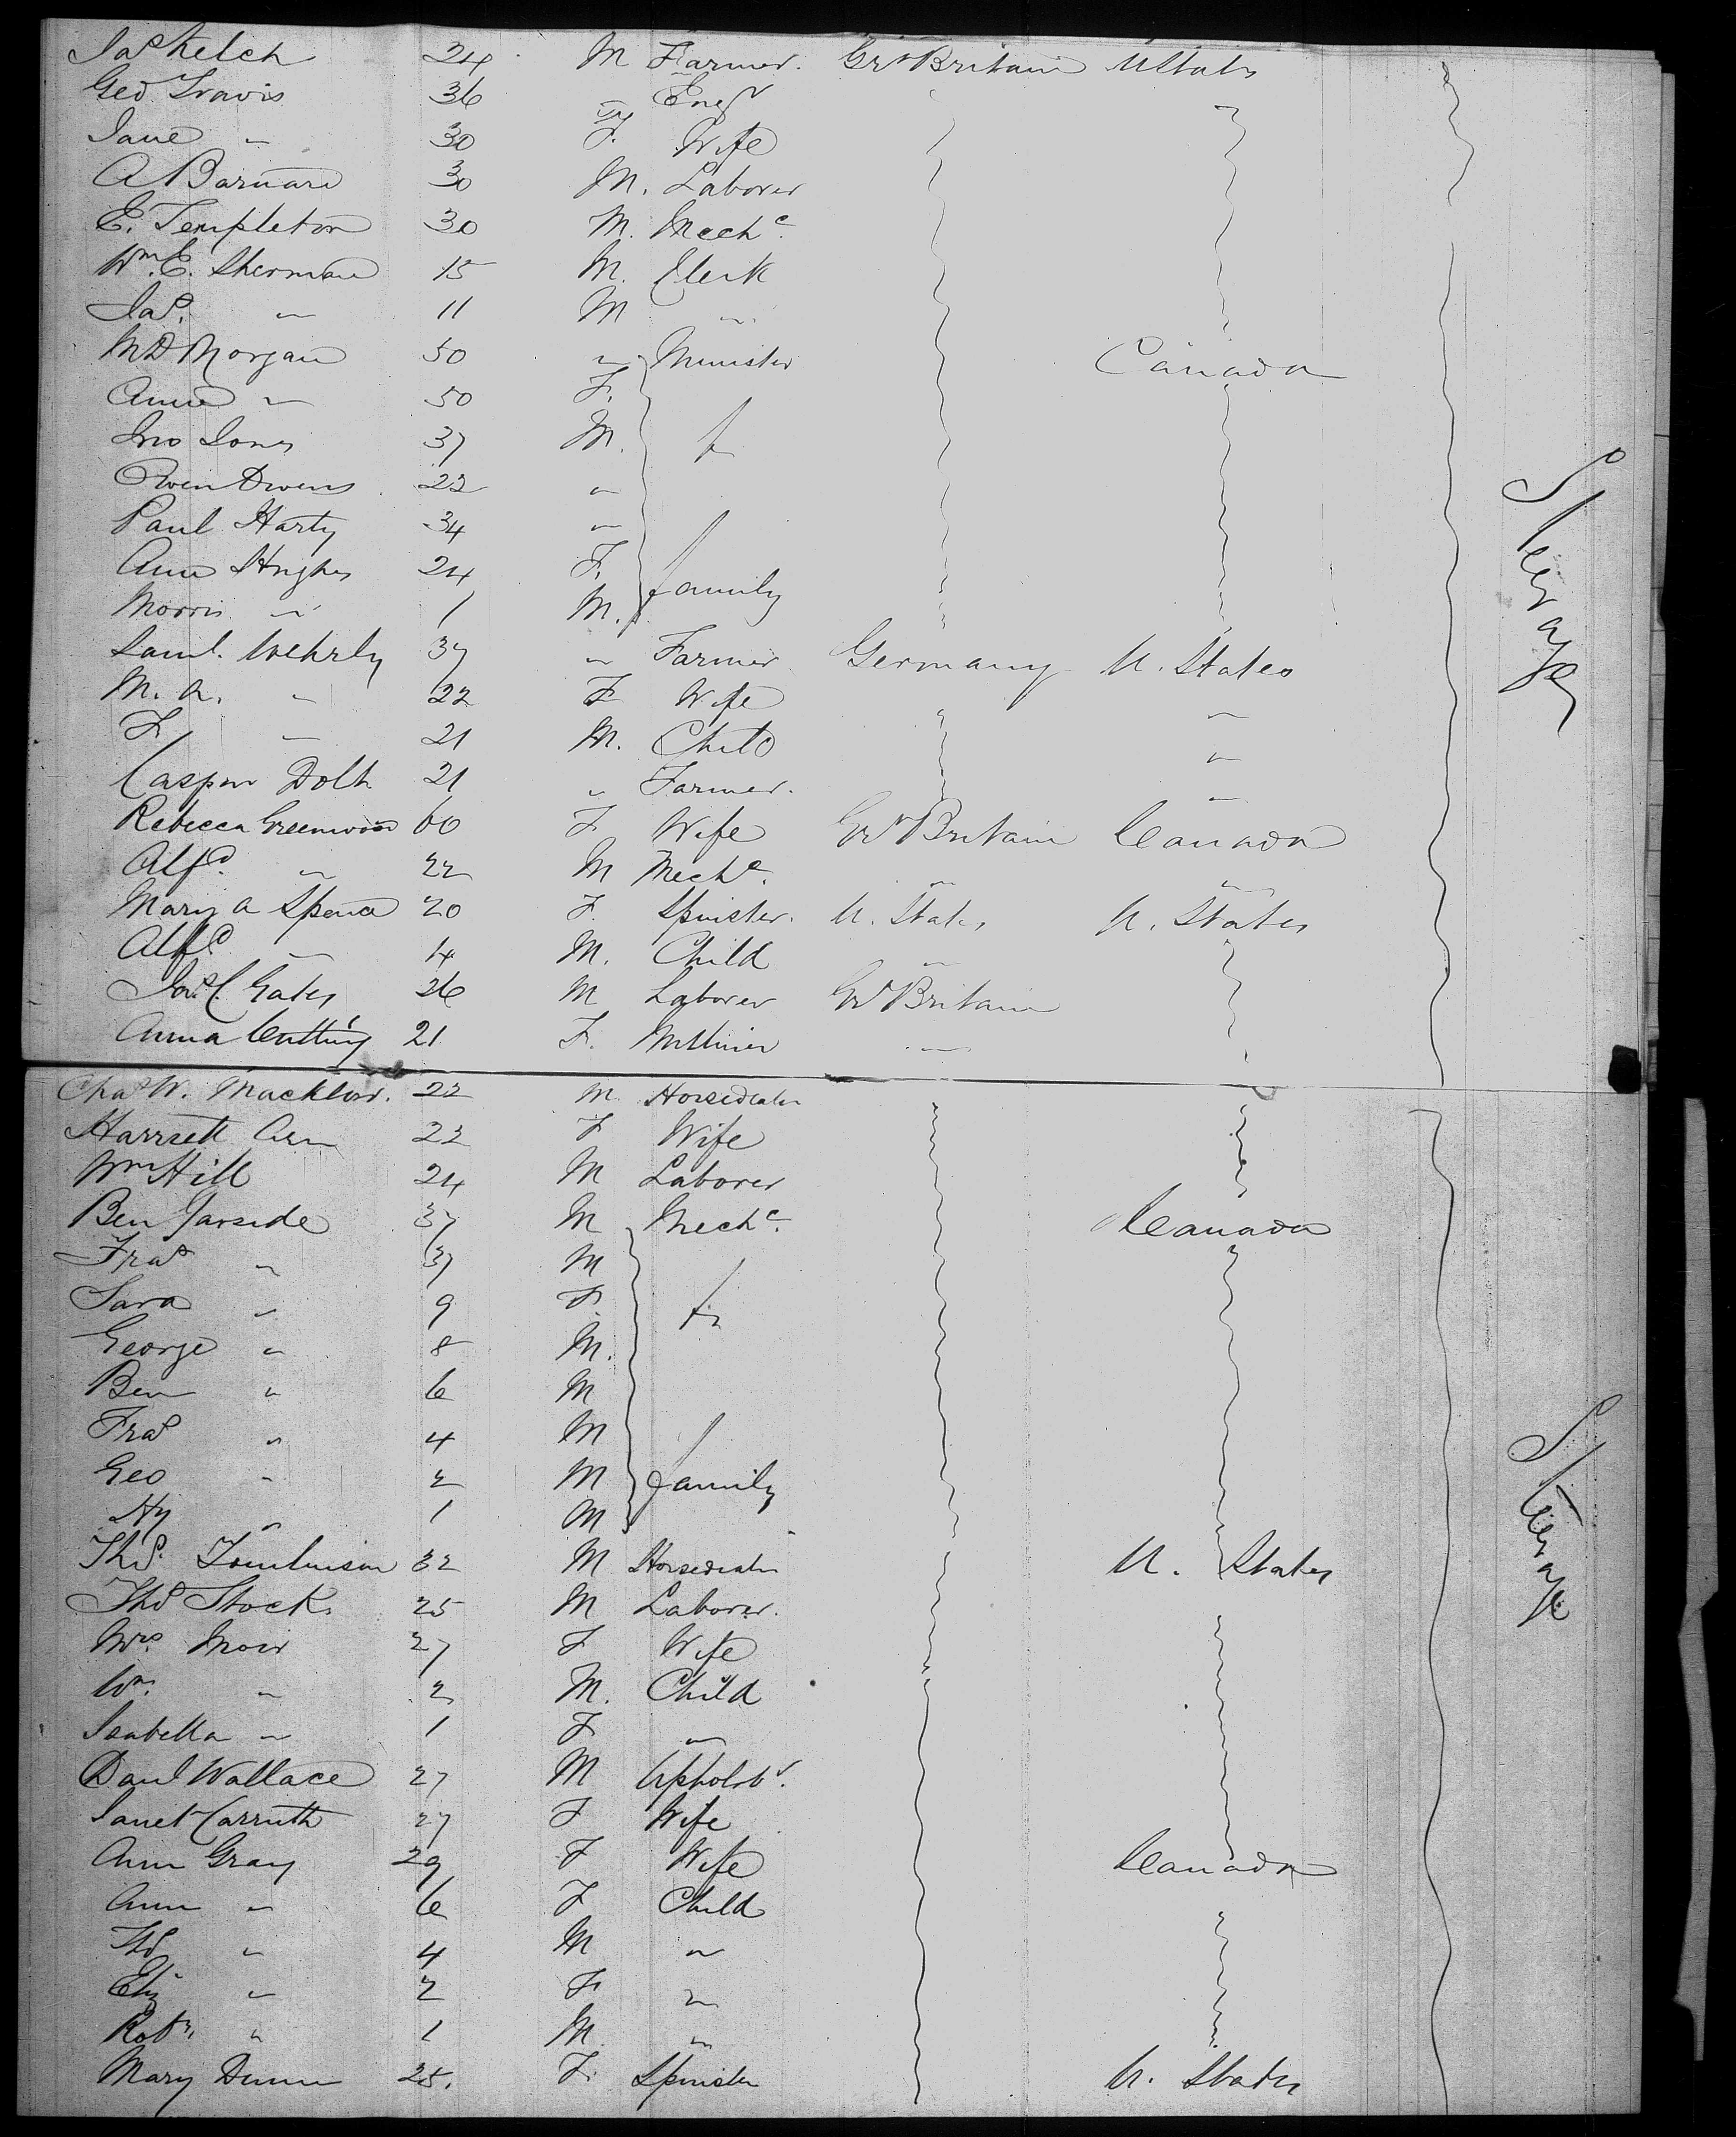 Jas Kelch 24 M Farmer. Gt Britain U States
Geo Travis 36 " Engr
Jane " 30 F. Wife
A Barnard 30 M. Laborer
E. Templeton 30 M. Mechc.
Wm. E. Sherman 15 M. Clerk
Jas. " 11 M "
M D Morgan 50 " Minister Canada
Anne " 50 F.
Jno Jones 37 M. f
Owen Owens 22 "
Paul Harty 34 "
Ann Hughes 24 F. family
Morris " 1 M.
Saml. Wehrly 37 " Farmer Germany U. States
M. A. " 22 F Wife "
F " 21 M. Child "
Caspar Dolh 21 " Farmer. "
Rebecca Greenwood 60 F Wife Gt Britain Canada
Alfd. " 22 M Mechc. " "
Mary A Spence 20 F. Spinster. U. States U. States
Alfd " 4 M. Child "
Jos. C. Gates 36 M Laborer Gt Britain
Anna Cutting 21 F. Milliner "
Steerage
Chas W. 22 M Horsedealer
Harriett Ann 22 F Wife
Wm Hill 24 M Laborer
Ben Garside 37 M Mechc. Canada
Fras " 37 M
Sara " 9 F. f
George " 8 M.
Ben " 6 M
Fras " 4 M
Geo " 2 M family
Hy " 1 M
Thos. Tomlinson 32 M Horsedealer U. States
Thos Stock 25 M Laborer.
Mrs. Moir 27 F Wife
Wm. " 2 M. Child
Isabella " 1 F "
Danl Wallace 27 M Upholstr.
Janet Carruth 27 F Wife
Ann Gray 29 F Wife Canada
Ann " 6 F Child
Thos " 4 M "
Eliz " 2 F "
Robt. " 1 M "
Mary Dunn 25. F. Spinster U. States
Steerage